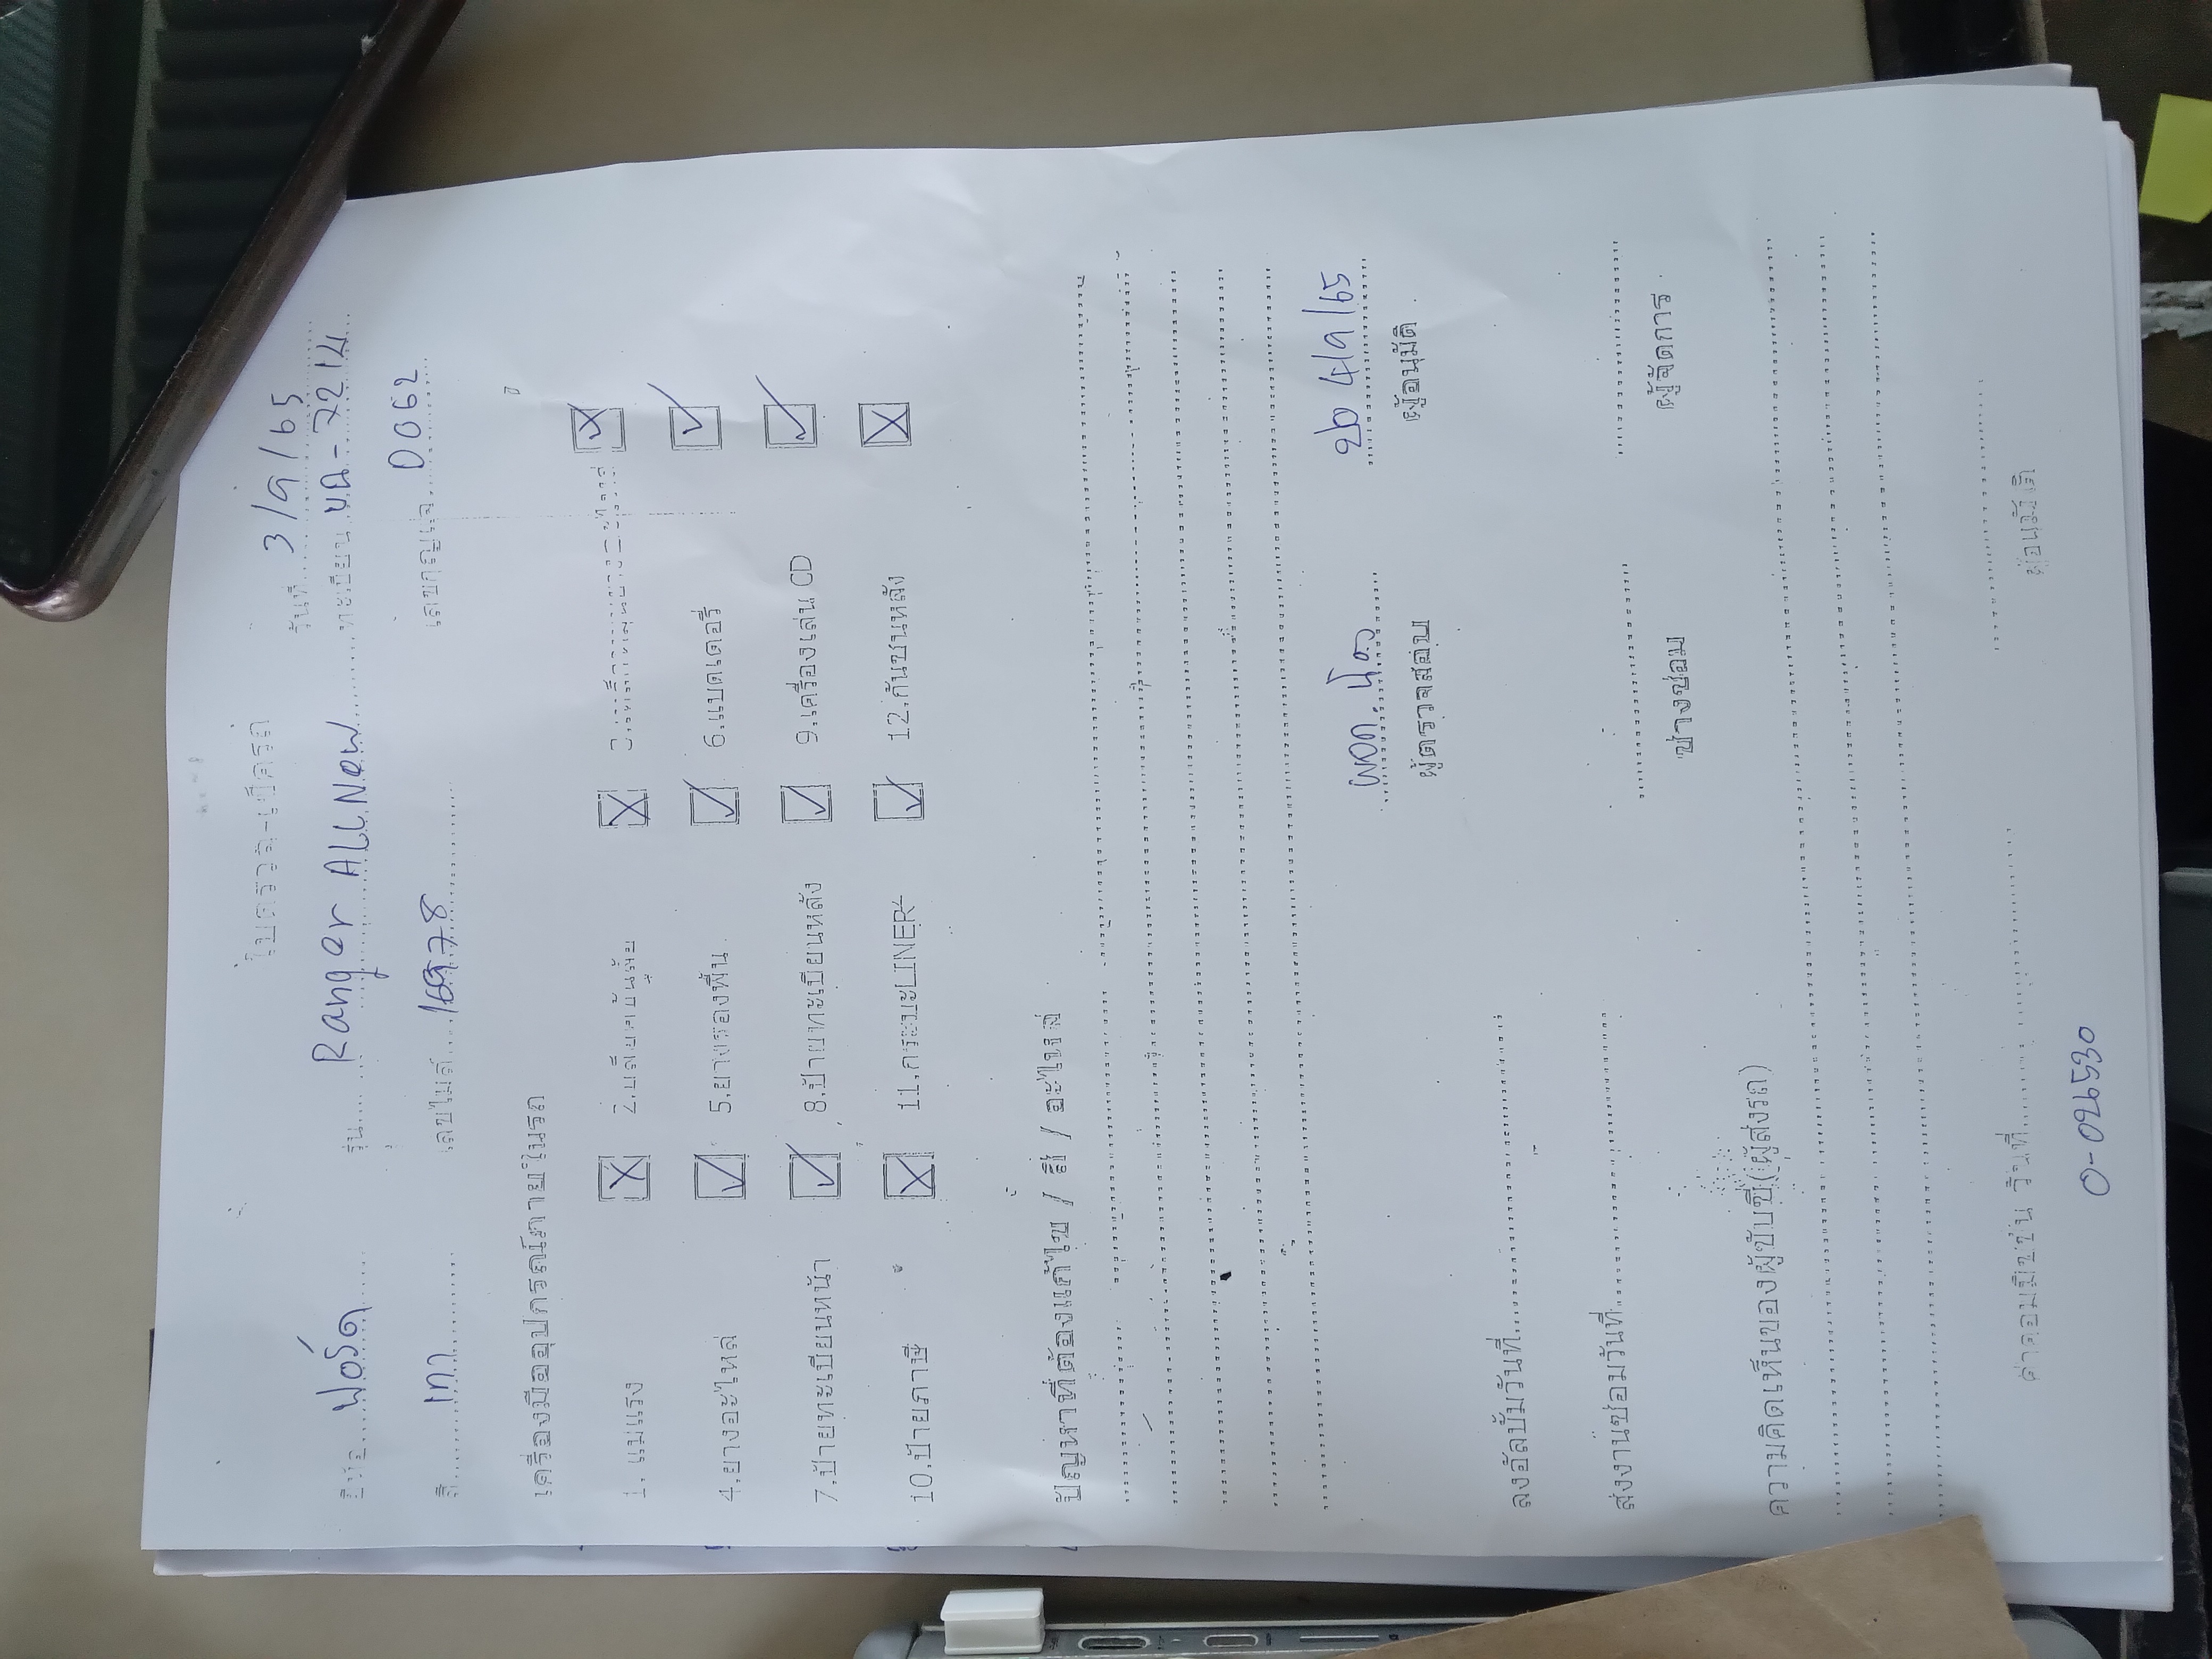 ใบตรวจ-เช็ครถ
วันที่ 3/9/65
ยี่ห้อ ฟอร์ด รุ่น Ranger All New ทะเบียน 7214
สี เทา เลขไมล์ เลขกุญแจ D062
เครื่องมืออุปกรณ์ภายในรถ
1. แม่แรง ☒ 2. ☒ 3. ☒
4.ยางอะไหล่ ☑ 5.ยางรองพื้น ☑ 6.แบตเตอรี่ ☑
7.ป้ายทะเบียนหน้า ☑ 8.ป้ายทะเบียนหลัง ☑ 9.เครื่องเล่น CD ☑
10.ป้ายภาษี ☒ 11.กระบะLINER ☑ 12.กันชนหลัง ☒
ปัญหาที่ต้องแก้ไข / สี / อะไหล่
4/9/65
ผู้ตรวจสอบ ผู้อนุมัติ
ลงอัลบั้มวันที่
ส่งงานซ่อมวันที่
ช่างซ่อม ผู้จัดการ
ความคิดเห็นของผู้ขับขี่(ผู้ส่งรถ)
ค่าคอมมิชชั่น วันที่
ผู้อนุมัติ
0-02530